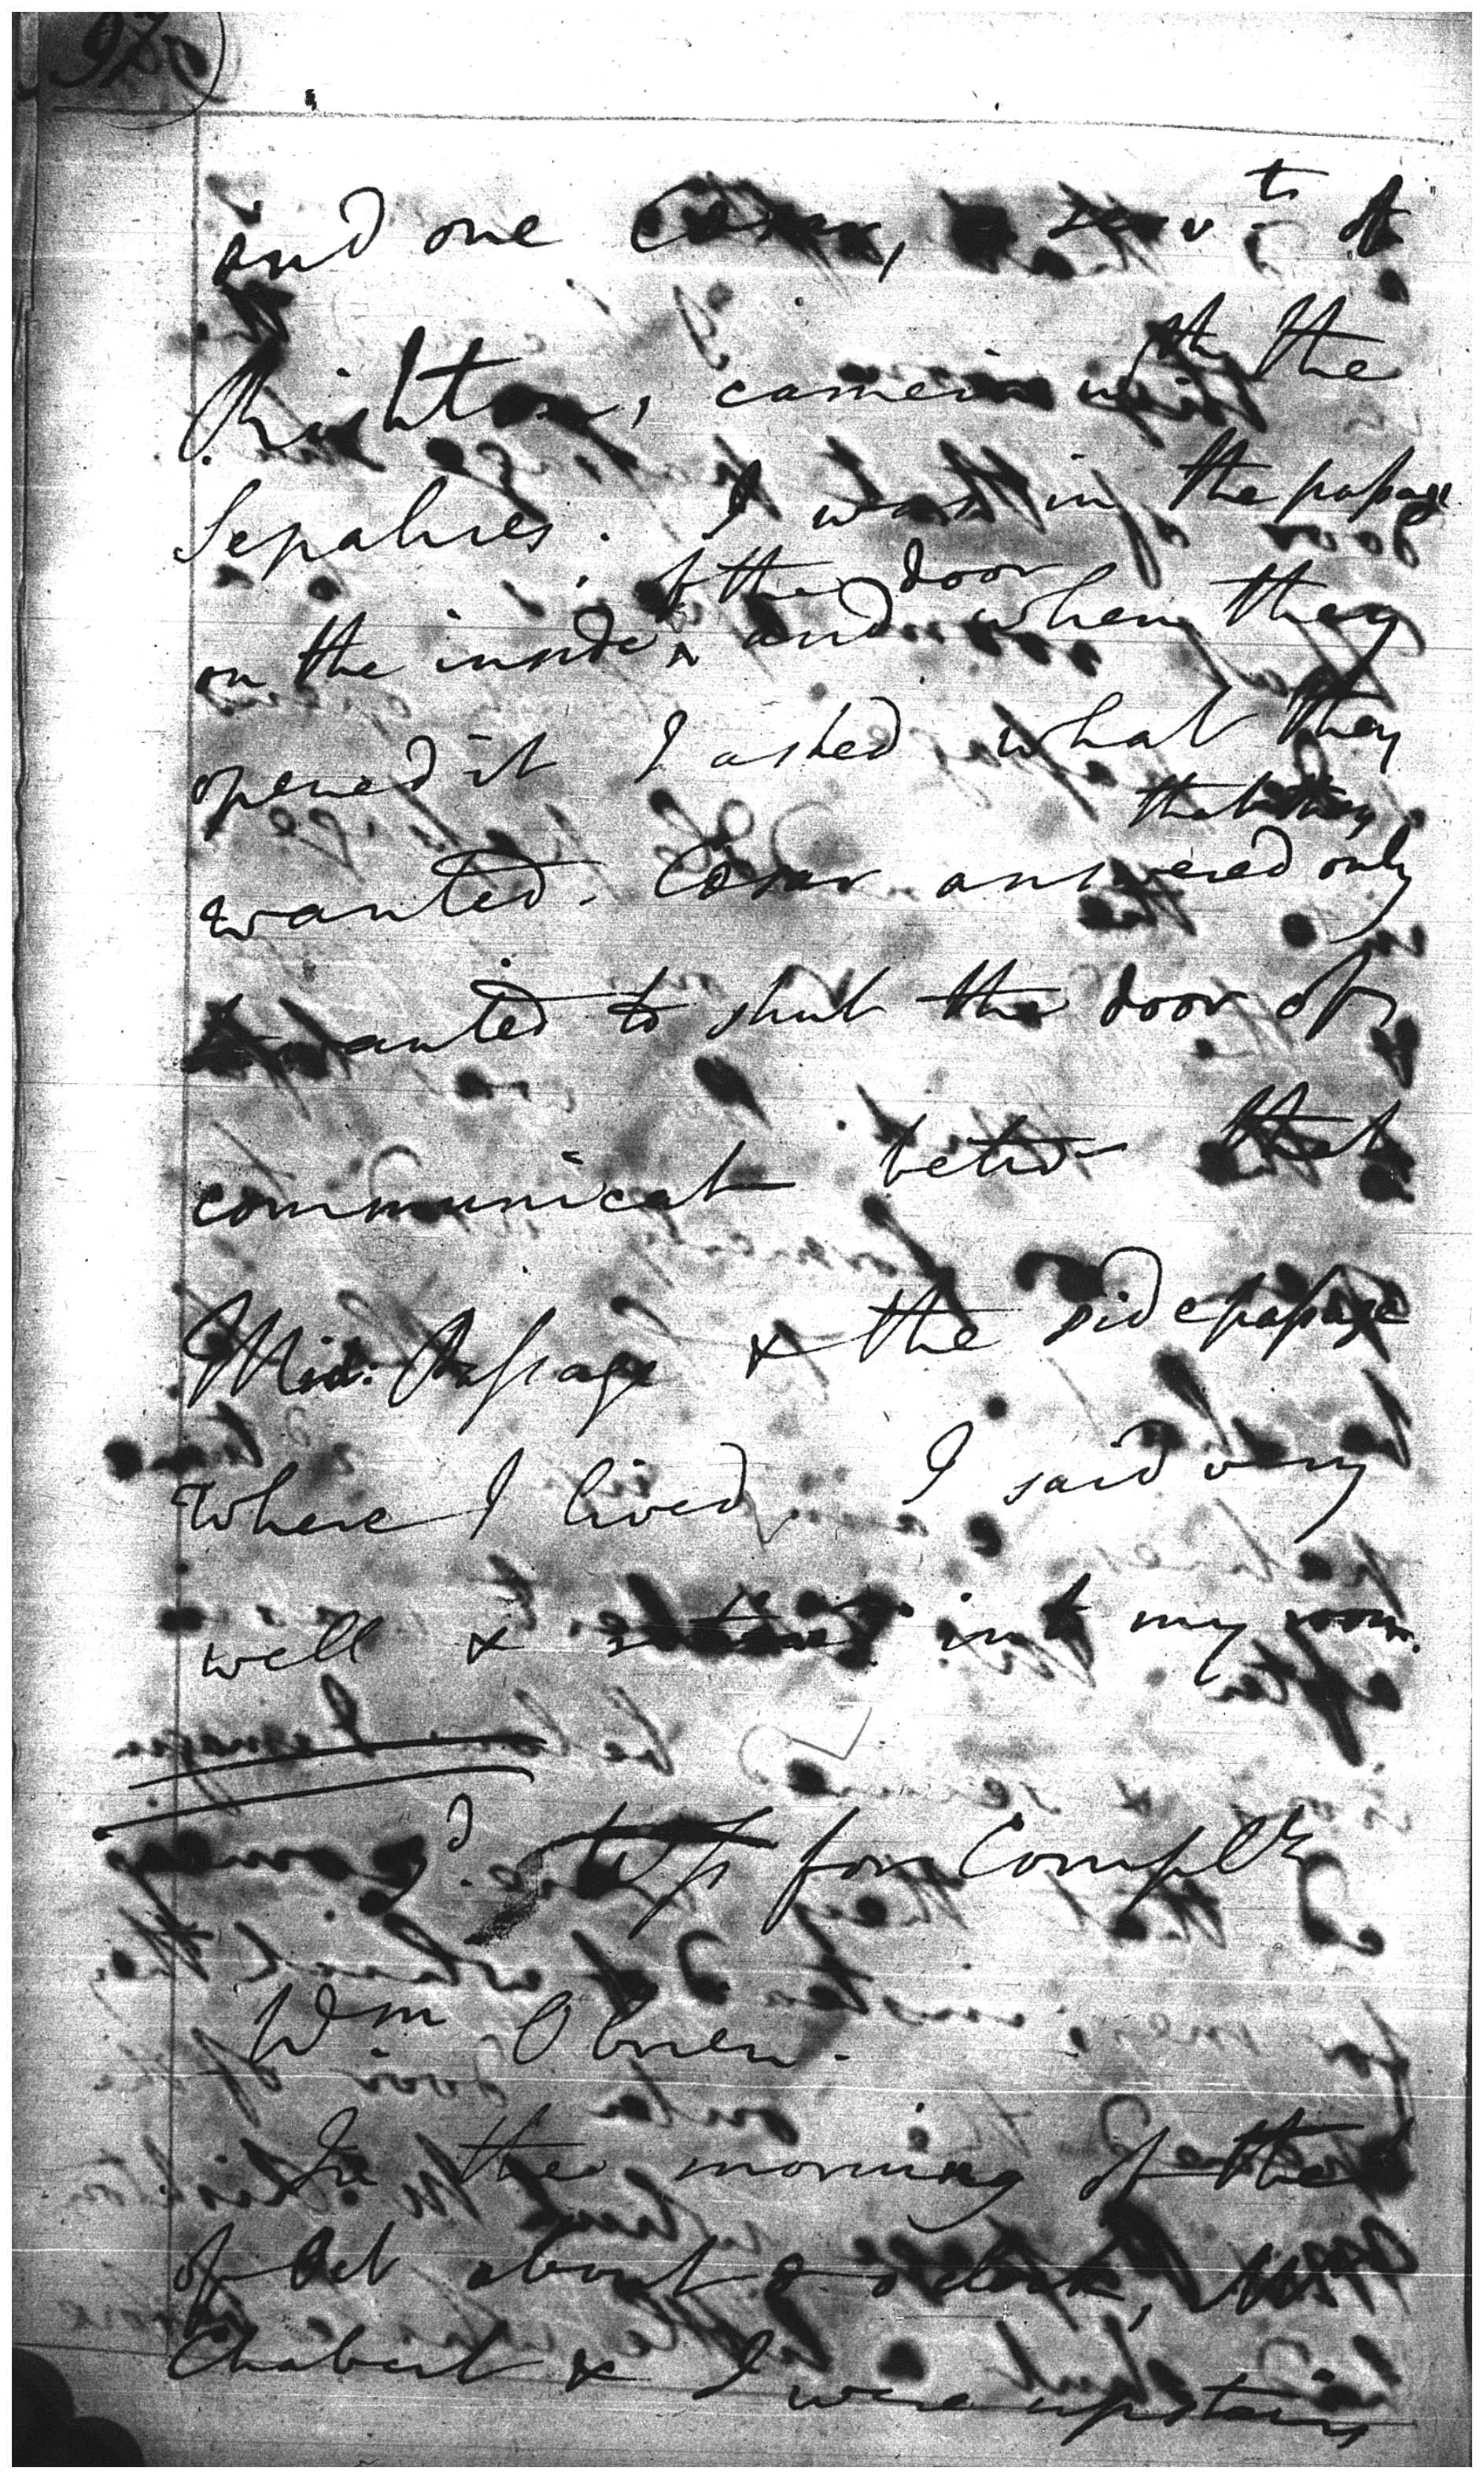 and one Cesar, servts of
Rishton, came in with the
Sepahies. I was in the passage
of the door
on the inside ^ and when they
opened it I asked what they
that they
wanted. Cesar answered only
wanted to shut the door of
communicat betw that
Mid: Passage & the side passage
where I lived I said very
well & in my room.
Wits for Complt
Wm Obrien.
In the morning of the
of Oct about 8 o'clock, Mr
Chabert & I were upstairs